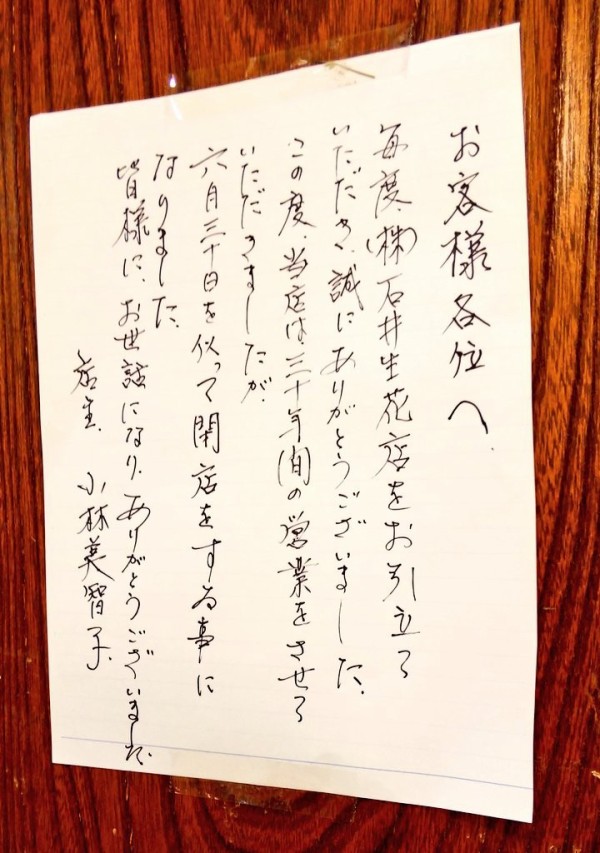 お客様各位へ
毎度、(株)石井生花店をお引立て
いただき、誠にありがとうございました。
この度、当店は三十年間の営業をさせて
いただきましたが、
六月三十日を似って閉店をする事に
なりました。
皆様に、お世話になり、ありがとうございました。
店主、小林美智子、